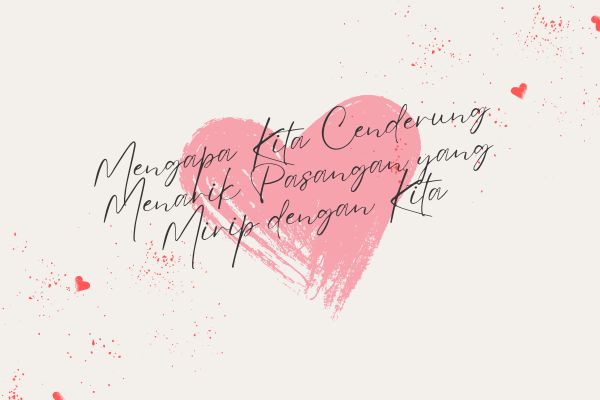 Mengapa Kita Cenderung
Menarik Pasangan yang
Mirip dengan Kita